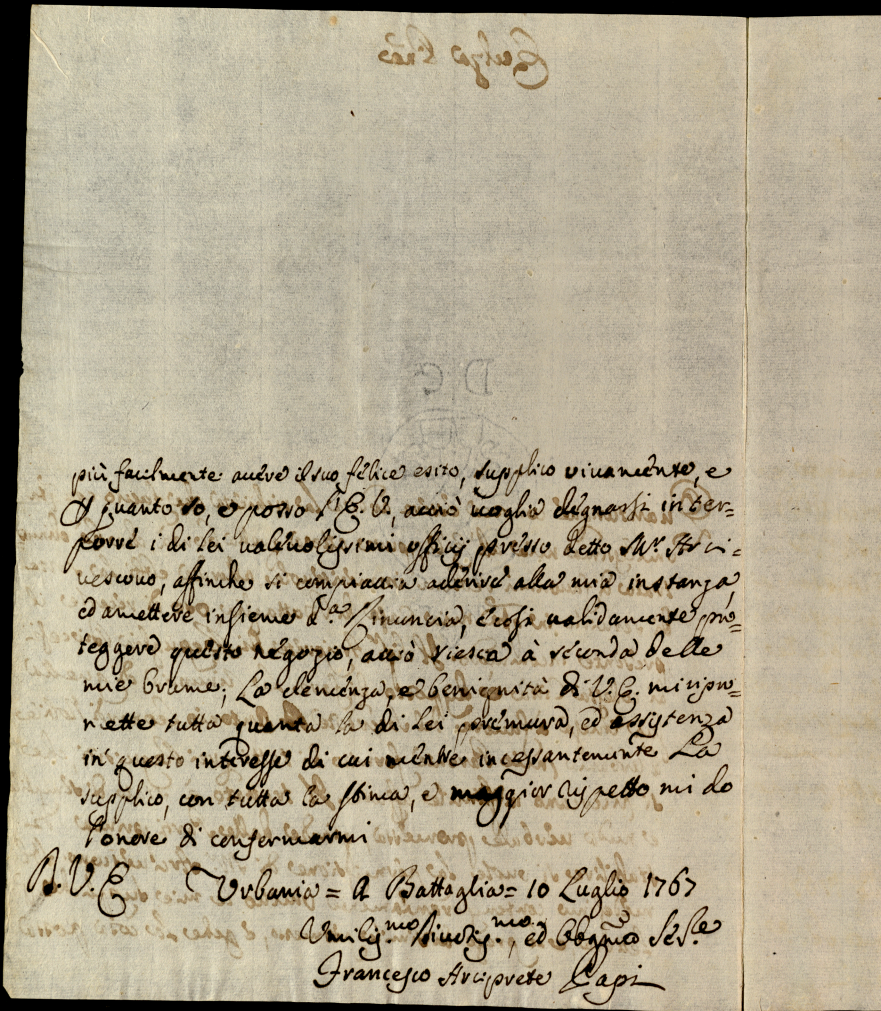 più facilmente avere il suo felice esito, supplico vivamente, e
quanto so, e posso l'E. V., acciò voglia degnarsi inter=
porre i di lei valevolissimi officij presso detto Mr. Arci=
vescovo, affinche si compiaccia aderire alla mia instanza,
ed amettere insieme da. Rinuncia, e così validamente pro=
teggere questo negozio, acciò riesca à seconda delle
mie brame; La clemenza, e benignità di V. E. mi ripro=
mette tutta quanta la di lei premura, ed assistenza
in questo interesse di cui mentre incessantemente La
supplico, con tutta la stima, e maggior rispetto mi do
l'onore di confermarmi
D. V. E Urbania = A Battaglia = 10 Luglio 1767
Umilis.mo Divotis.mo, ed Obgmo Se.re
Francesco Arciprete Papi
D G